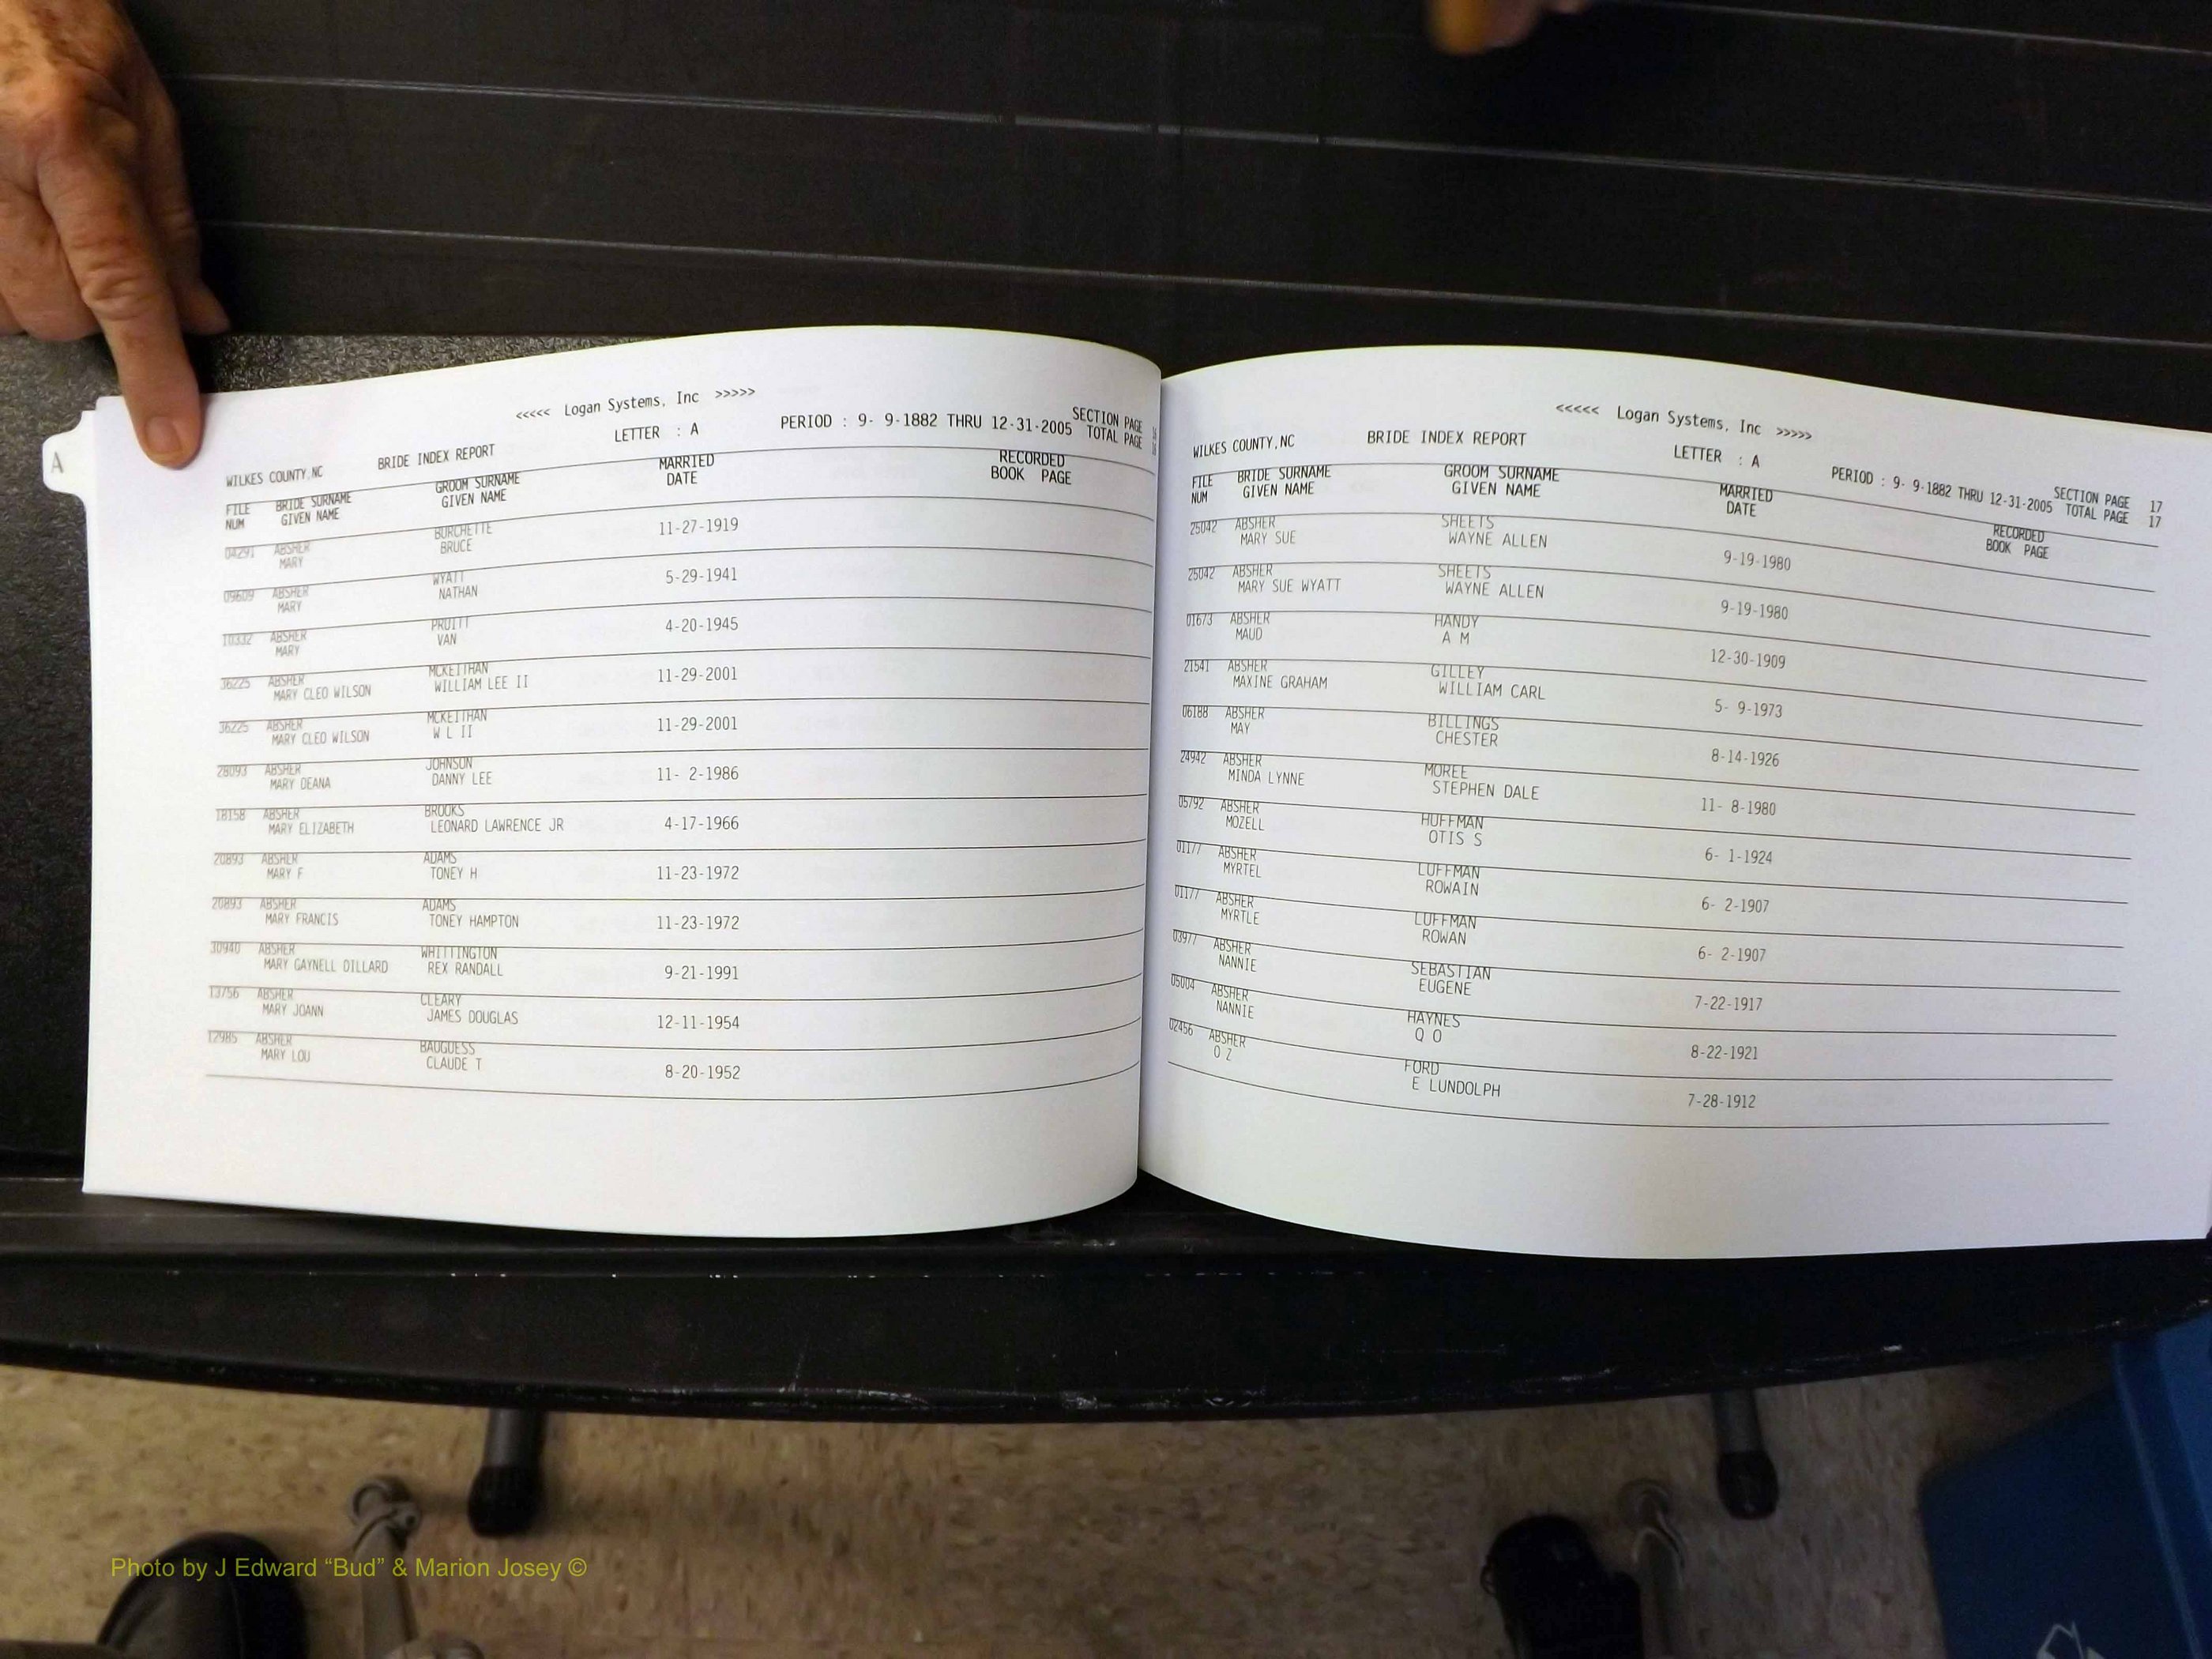 A
<<<<< Logan Systems, Inc >>>>>
WILKES COUNTY,NC BRIDE INDEX REPORT LETTER : A PERIOD : 9- 9-1882 THRU 12-31-2005 SECTION PAGE
TOTAL PAGE
FILE BRIDE SURNAME GROOM SURNAME MARRIED RECORDED
NUM GIVEN NAME GIVEN NAME DATE BOOK PAGE
04291 ABSHER BURCHETTE 11-27-1919
MARY BRUCE
09609 ABSHER WYATT 5-29-1941
MARY NATHAN
10332 ABSHER PRUITT 4-20-1945
MARY VAN
36225 ABSHER MCKEITHAN 11-29-2001
MARY CLEO WILSON WILLIAM LEE II
36225 ABSHER MCKEITHAN 11-29-2001
MARY CLEO WILSON W L II
28093 ABSHER JOHNSON 11- 2-1986
MARY DEANA DANNY LEE
18158 ABSHER BROOKS 4-17-1966
MARY ELIZABETH LEONARD LAWRENCE JR
20893 ABSHER ADAMS 11-23-1972
MARY F TONEY H
20893 ABSHER ADAMS 11-23-1972
MARY FRANCIS TONEY HAMPTON
30940 ABSHER WHITTINGTON 9-21-1991
MARY GAYNELL DILLARD REX RANDALL
13756 ABSHER CLEARY 12-11-1954
MARY JOANN JAMES DOUGLAS
12985 ABSHER BAUGUESS 8-20-1952
MARY LOU CLAUDE T
<<<<< Logan Systems, Inc >>>>>
WILKES COUNTY,NC BRIDE INDEX REPORT LETTER : A PERIOD : 9- 9-1882 THRU 12-31-2005 SECTION PAGE 17
TOTAL PAGE 17
FILE BRIDE SURNAME GROOM SURNAME MARRIED RECORDED
NUM GIVEN NAME GIVEN NAME DATE BOOK PAGE
25042 ABSHER SHEETS 9-19-1980
MARY SUE WAYNE ALLEN
25042 ABSHER SHEETS 9-19-1980
MARY SUE WYATT WAYNE ALLEN
01673 ABSHER HANDY 12-30-1909
MAUD A M
21541 ABSHER GILLEY 5- 9-1973
MAXINE GRAHAM WILLIAM CARL
06188 ABSHER BILLINGS 8-14-1926
MAY CHESTER
24942 ABSHER MOREE 11- 8-1980
MINDA LYNNE STEPHEN DALE
05792 ABSHER HUFFMAN 6- 1-1924
MOZELL OTIS S
01177 ABSHER LUFFMAN 6- 2-1907
MYRTEL ROWAIN
01177 ABSHER LUFFMAN 6- 2-1907
MYRTLE ROWAN
03977 ABSHER SEBASTIAN 7-22-1917
NANNIE EUGENE
05004 ABSHER HAYNES 8-22-1921
NANNIE Q O
02456 ABSHER FORD 7-28-1912
O Z E LUNDOLPH
Photo by J Edward “Bud” & Marion Josey ©